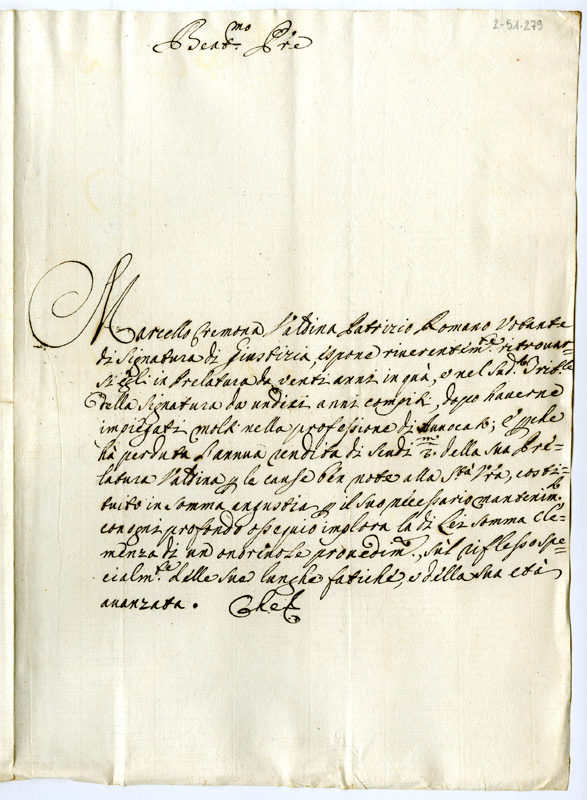 2-51-279
Beat.mo Pre
Marcello Cremona Valdina Patrizio Romano Votante
di Signatura di Giustizia, espone riverentem.te ritrovar=
si egli in Prelatura da venti anni in quà, e nel Sud.o Trib.le
della Signatura da undici anni compiti, dopo haverne
impiegati molti nella professione di Avvocato; e perche
hà perduta l'annua rendita di Scudi della sua Pre=
latura Valdina p le cause ben note alla S.tà Vra, costi=
tuito in somma angustia p il suo necessario mantenim.to
con ogni profondo ossequio implora la di Lei somma Cle=
menza di un ondrevole provedim.to, sul riflesso spe=
cialm.te delle sue lunghe fatiche, e della sua età
avanzata. Che